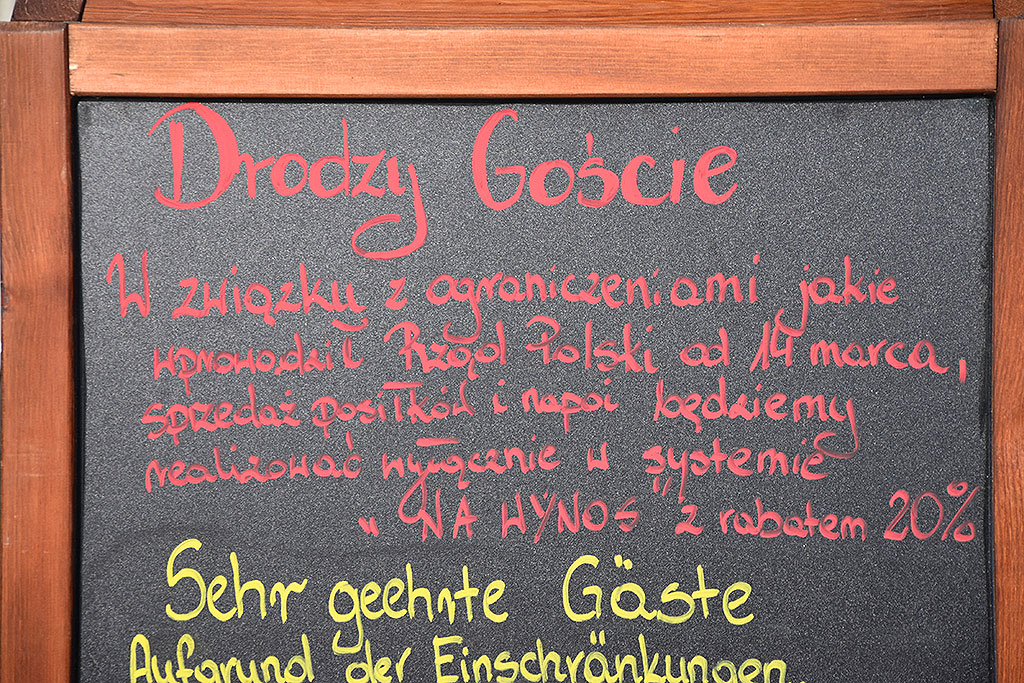 Drodzy Goście
W związku z ograniczeniami jakie
wprowadził Rząd Polski od 14 marca,
sprzedaż posiłków i napoi będziemy
realizować wyłącznie w systemie
„NA WYNOS" z rabatem 20%
Sehr geehrte Gäste
Aufgrund der Einschränkungen,